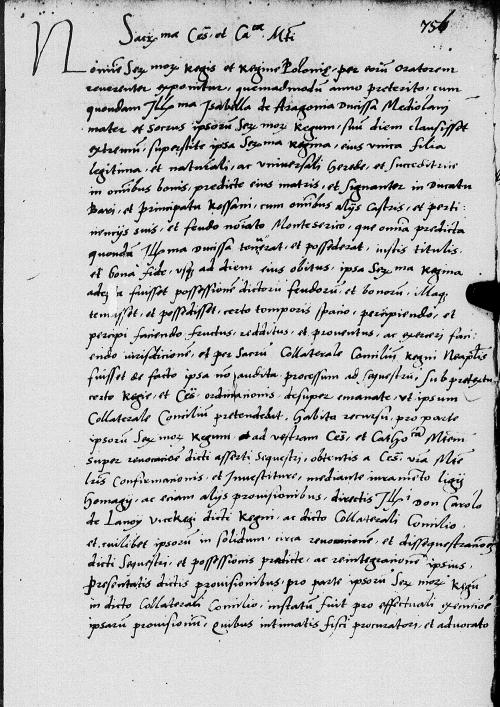 756
Sacr.ma Ces. et Ca.ca M.ti
Nomine Ser.mor Regis et Regine Polonie, per eorũ oratorem
reverenter exponitur, quemadmodũ anno preterito, cum
quondam Ill.ma Isabella de Aragonia Ducissa Mediolani
mater et socrus ipsorũ Ser.mor Regum, suũ diem clausisset
extremũ, superstite ipsa Ser.ma Regina, eius unica filia
legitima, et naturali, ac universali herede, et succeditrice
in omibus bonis, predicte eius matris, et signanter in Ducatu
Bari, et Principatu Rossani, cum omibus alijs castris, et perti:
nencijs suis, et feudo noĩato Monteserico, que omia predicta
quondã Ill.ma Ducissa tenerat, et possederat, iustis titulis
et bona fide, usq ad diem eius obitus, ipsa Ser.ma Regina
fuisset possessionẽ dictorũ feudorũ, et bonorũ,
et possedisset, certo temporis spatio, percipiendo, et
percipi faciendo fructus, redditus, et proventus, ac exerceri faci:
endo iurisdictionẽ, et per Sacrũ Collaterale Consiliũ Regni Neaplis
fuisset de facto ipsa nõ audita processum ad sequestrũ, sub pretextu
certe Regie, et Ces. ordinationis desuper emanate, ut ipsum
Collaterale Consiliũ pretendebat, habita recursũ, pro parte
ipsorũ Ser.mor Regum ad vestram Ces. et Catho.cam M.tem
super revocatione dicti asserti sequestri, obtentis a Ces. vra M.te
lris Confirmationis et Investiture, mediante iuramẽto ligij
homagij, ac etiam alijs provisionibus, directis Ill.i Don Carolo
de Lanoy ViceRegi dicti Regni, ac dicto Collaterali Consilio,
et cuilibet ipsorũ in solidum, circa revocationẽ, et dissequestrationẽ
dicti sequestri, et possessionis predicte, ac reintegrationẽ ipsius,
Presentatis dictis provisionibus, pro parte ipsorũ Ser.mor Regũ
in dicto Collaterali Consilio, instatũ fuit pro effectuali executiõe
ipsarũ provisionũ, Quibus intimatis fisci procuratori, et advocato